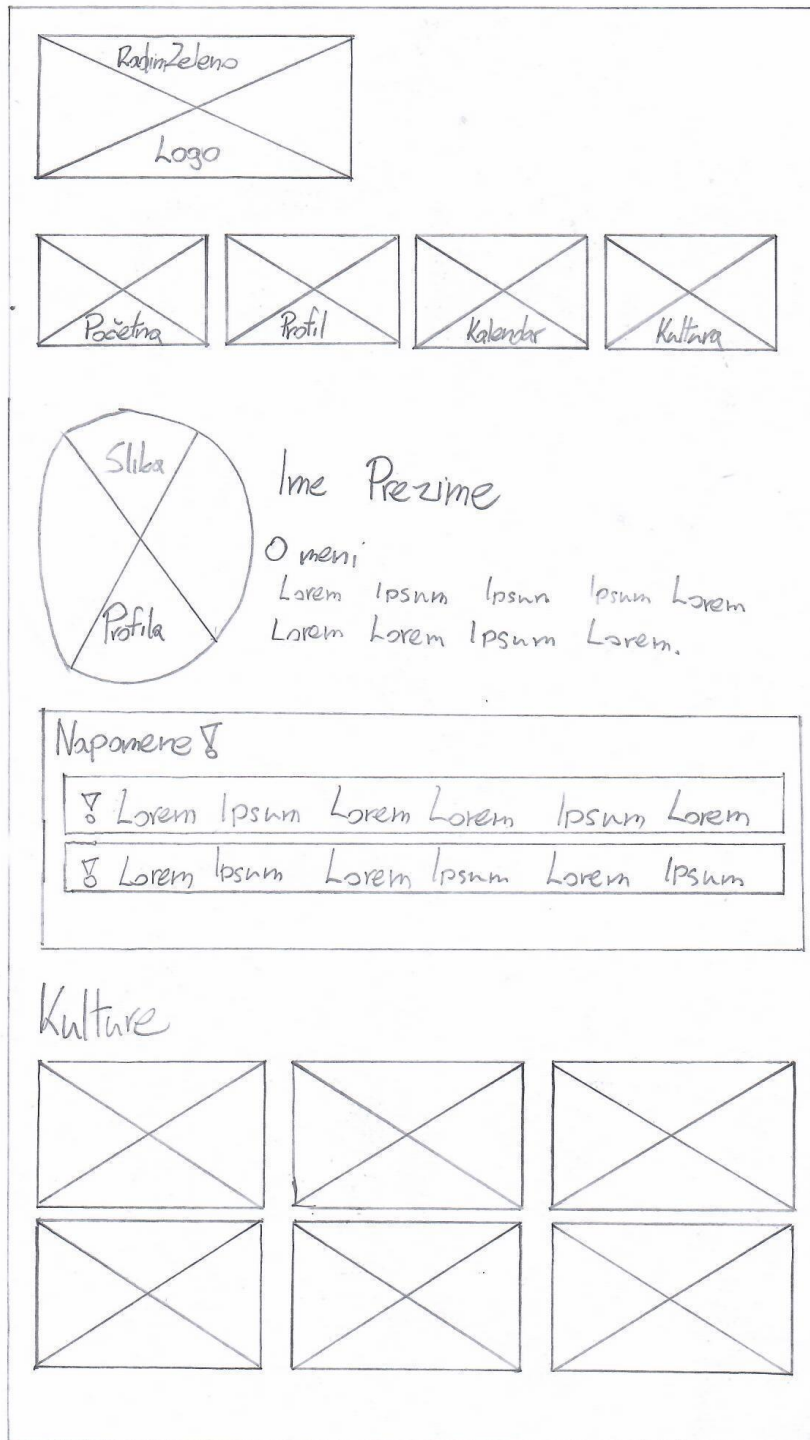 RadimZeleno
Logo
Početna Profil Kalendar Kultura
Slika
Profila
Ime Prezime
O meni
Lorem Ipsum Ipsum Ipsum Lorem
Lorem Lorem Ipsum Lorem.
Napomene !
! Lorem Ipsum Lorem Lorem Ipsum Lorem
! Lorem Ipsum Lorem Ipsum Lorem Ipsum
Kulture